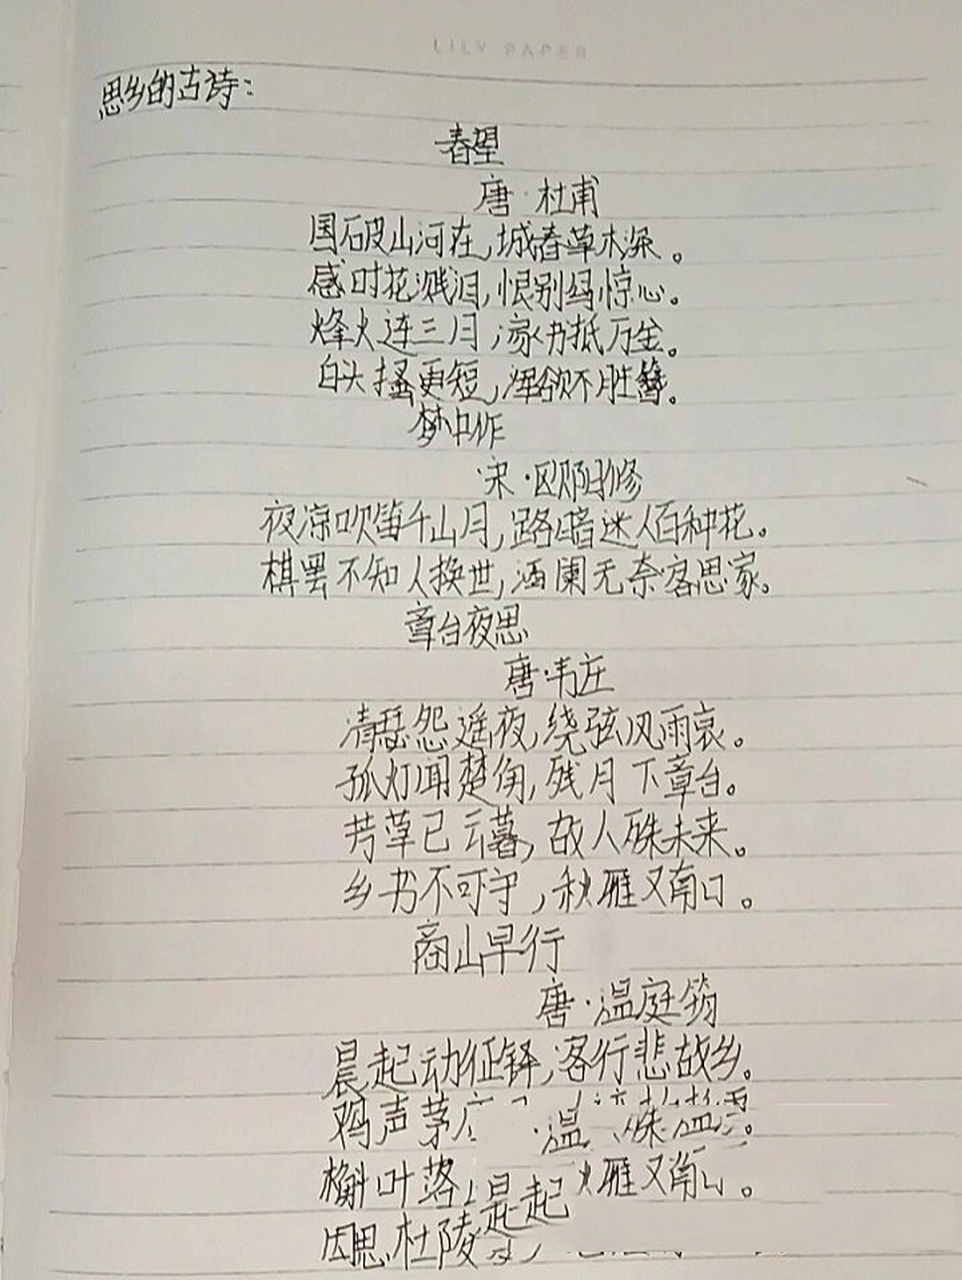 LILY PAPER
思乡的古诗：
春望
唐·杜甫
国破山河在，城春草木深。
感时花溅泪，恨别鸟惊心。
烽火连三月，家书抵万金。
白头搔更短，浑欲不胜簪。
梦中作
宋·欧阳修
夜凉吹笛千山月，路暗迷人百种花。
棋罢不知人换世，酒阑无奈客思家。
章台夜思
唐·韦庄
清瑟怨遥夜，绕弦风雨哀。
孤灯闻楚角，残月下章台。
芳草已云暮，故人殊未来。
乡书不可寄，秋雁又南回。
商山早行
唐·温庭筠
晨起动征铎，客行悲故乡。
鸡声茅
温 殊温
槲叶落 雁又南
晨起
因思杜陵